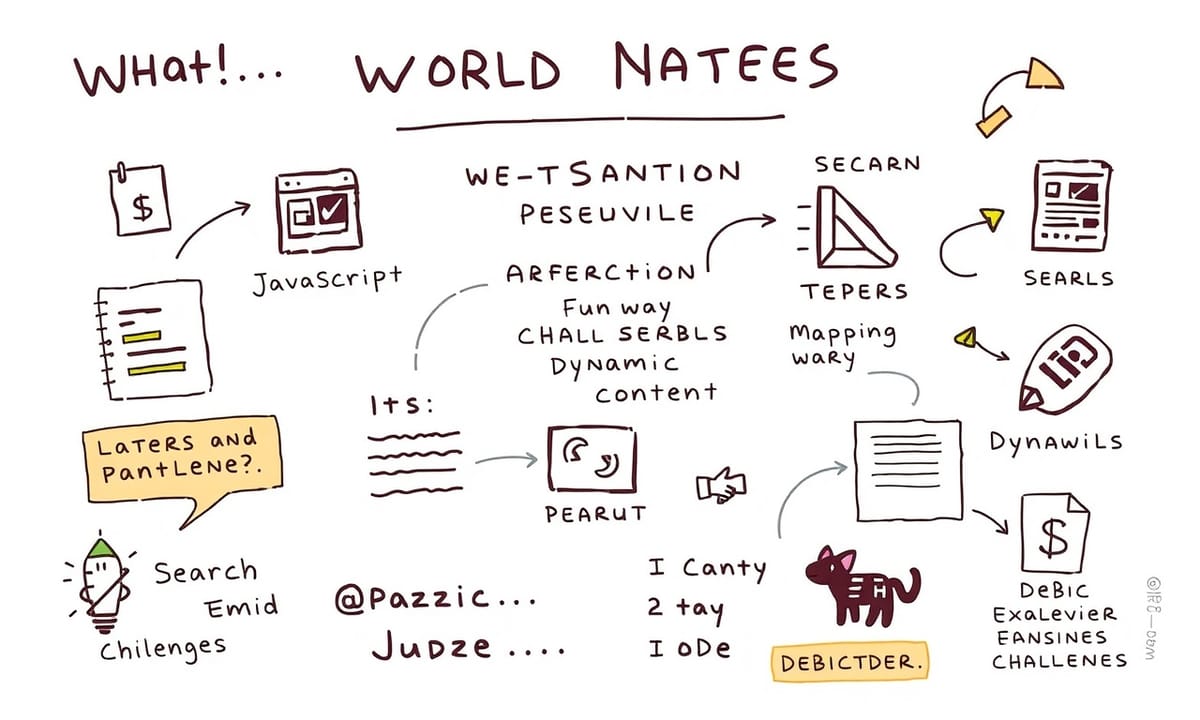 WHat!... WORLD NATEES
WE-TSANTION
PESEUVILE
SECARN
$
JavaScript
ARFERCtiON
Fun way
CHALL SERBLS
DyNamic
content
TEPERS
Mapping
waRy
SEARLS
DyNAWiLS
LateRS aND
PantLeNe?.
Its:
PEARUT
Search
Emid
Chilenges
@Pazzic...
Judze ....
I Canty
2 tay
I oDe
H
DEBICTDER.
$
DeBic
ExaLevieR
EANSINES
CHALLENES